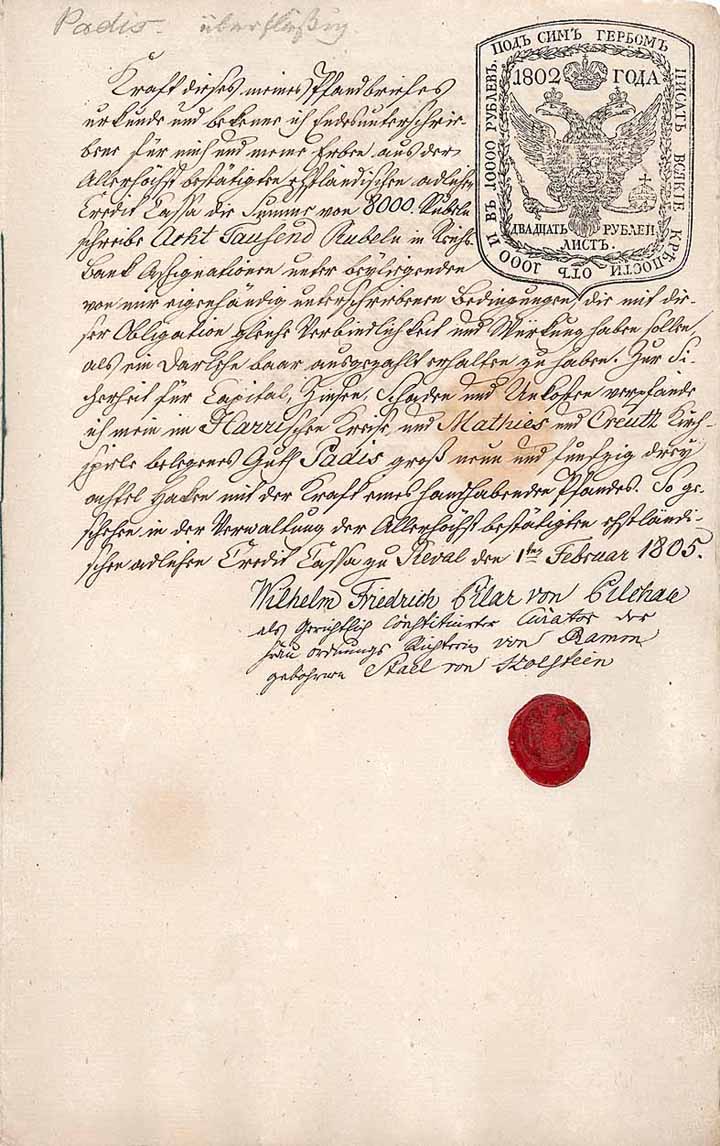 Padis. überflüßig.
ПОДЪ СИМЪ ГЕРБОМЪ ПИСАТЬ ВСЯКІЕ КРѢПОСТИ ОТЪ 1000 И ВЪ 10000 РУБЛЕВЪ.
1802 ГОДА
ДВАДЦАТЬ РУБЛЕЙ
ЛИСТЪ.
Kraft dieses meines Pfandbriefes
urkunde und bekenne ich Endesunterschrie-
bene für mich und meine Erben aus der
Allerhöchst bestätigten ehstländischen adlichen
Credit Cassa die Summe von 8000. Rubeln
schreibe Acht Tausend Rubeln in Reichs-
Bank Assignationen unter beyliegenden
von mir eigenhändig unterschriebenen Bedingungen, die mit die-
ser Obligation gleiche Verbindlichkeit und Würkung haben sollen,
als ein Darlehn baar ausgezahlt erhalten zu haben. Zur Si-
cherheit für Capital, Zinsen, Schaden und Unkosten verpfände
ich mein im Harrischen Kreise, und Mathies und Creutz Kirch-
spiele belegenes Guth Padis groß neun und funfzig drey
achtel Haken mit der Kraft eines handhabenden Pfandes. So ge-
schehen in der Verwaltung der Allerhöchst bestätigten ehstländi-
schen adlichen Credit Cassa zu Reval den 1ten Februar 1805.
Wilhelm Friedrich Pilar von Pilchau
als Gerichtlich Constituirter Curator der
Frau Ordnungs Richterin von Ramm
gebohrne Stael von Holstein